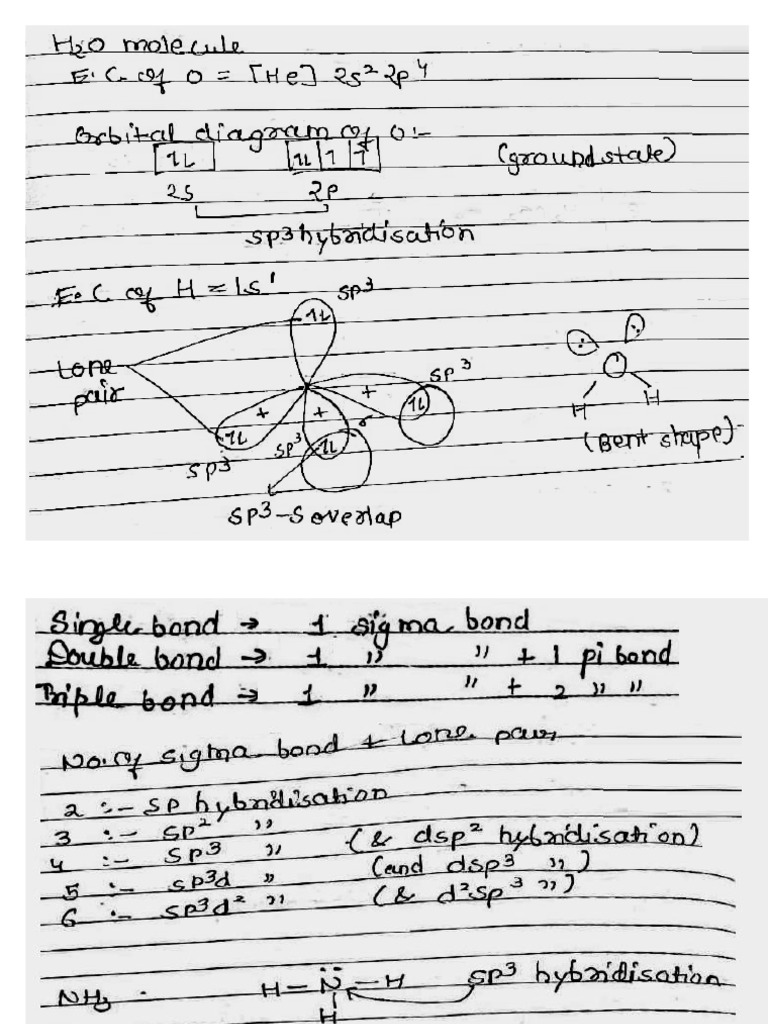 H2O molecule
E.C. of O = [He] 2s² 2p⁴
Orbital diagram of O:-
1L 1L 1 1 (ground state)
2s 2p
sp3 hybridisation
E.C. of H = 1s¹
sp³
1L
Lone pair
sp³
+ + +
1L 1L 1L
sp³ sp³
O
H H
(Bent shape)
sp³-s overlap
Single bond → 1 sigma bond
Double bond → 1 " " + 1 pi bond
Triple bond → 1 " " + 2 " "
No. of sigma bond + lone pair
2 :- sp hybridisation
3 :- sp² "
4 :- sp³ " (& dsp² hybridisation)
5 :- sp³d " (and dsp³ ")
6 :- sp³d² " (& d²sp³ ")
NH3 H-N-H sp³ hybridisation
H